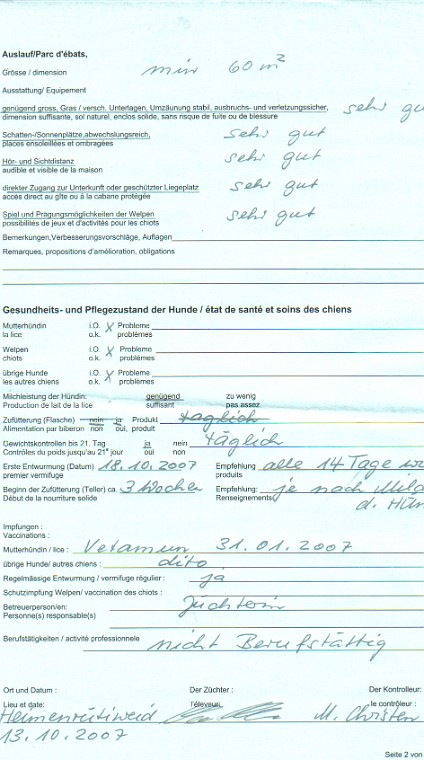 Auslauf/Parc d'ébats,
Grösse / dimension min 60 m²
Ausstattung/ Equipement
genügend gross, Gras / versch. Unterlagen, Umzäunung stabil, ausbruchs- und verletzungssicher, sehr gu
dimension suffisante, sol naturel, enclos solide, sans risque de fuite ou de blessure
Schatten-/Sonnenplätze,abwechslungsreich, sehr gut
places ensoleillées et ombragées
Hör- und Sichtdistanz sehr gut
audible et visible de la maison
direkter Zugang zur Unterkunft oder geschützter Liegeplatz sehr gut
accès direct au gîte ou à la cabane protégée
Spiel und Prägungsmöglichkeiten der Welpen sehr gut
possibilités de jeux et d'activités pour les chiots
Bemerkungen,Verbesserungsvorschläge, Auflagen
Remarques, propositions d'amélioration, obligations
Gesundheits- und Pflegezustand der Hunde / état de santé et soins des chiens
Mutterhündin i.O. X Probleme
la lice o.k. problèmes
Welpen i.O. X Probleme
chiots o.k. problèmes
übrige Hunde i.O. X Probleme
les autres chiens o.k. problèmes
Milchleistung der Hündin: genügend zu wenig
Production de lait de la lice suffisant pas assez
Zufütterung (Flasche) nein ja Produkt täglich
Alimentation par biberon non oui, produit
Gewichtskontrollen bis 21. Tag ja nein täglich
Contrôles du poids jusqu'au 21e jour oui non
Erste Entwurmung (Datum) 18.10.2007 Empfehlung alle 14 Tage
premier vermifuge produits
Beginn der Zufütterung (Teller) ca. 3 Wochen Empfehlung: je nach Milc
Début de la nourriture solide Renseignements d. Hün
Impfungen :
Vaccinations :
Mutterhündin / lice : Vetamun 31.01.2007
übrige Hunde/ autres chiens : dito
Regelmässige Entwurmung / vermifuge régulier : ja
Schutzimpfung Welpen/ vaccination des chiots :
Betreuerperson/en: Züchterin
Personne(s) responsable(s)
Berufstätigkeiten / activité professionnele nicht Berufstättig
Ort und Datum : Der Züchter : Der Kontrolleur:
Lieu et date: l'éleveur: le contrôleur :
Heimenrütiweid M. Christen
13.10.2007
Seite 2 von